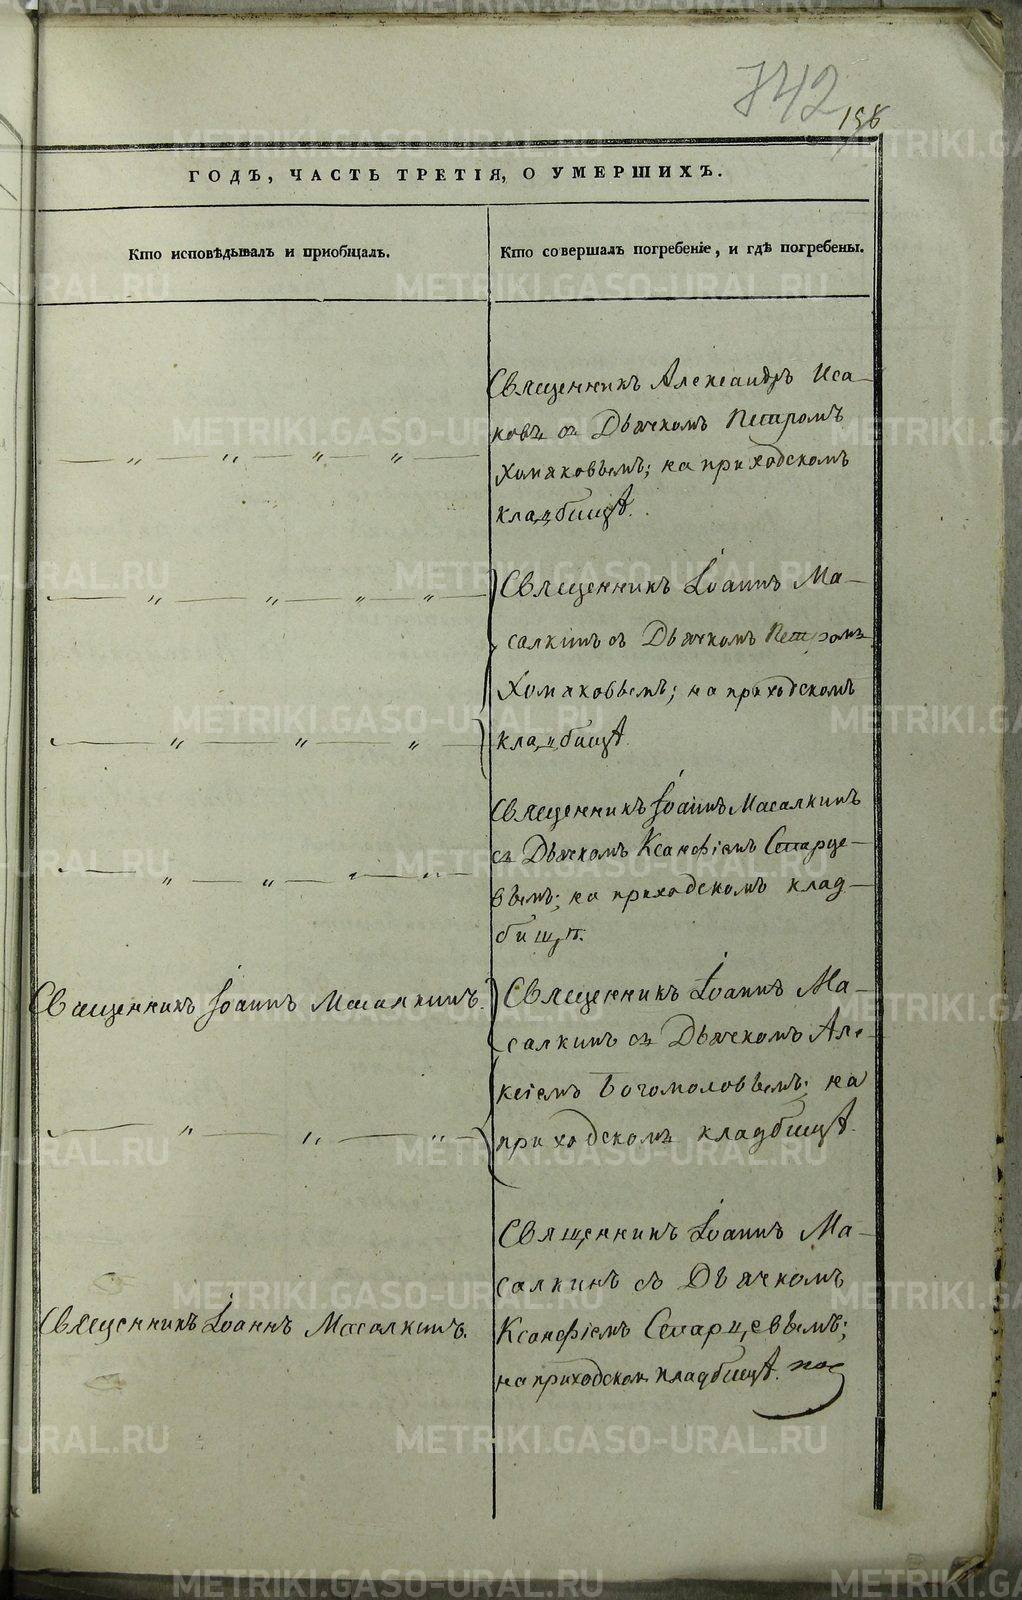 742
ГОДЪ, ЧАСТЬ ТРЕТІЯ, О УМЕРШИХЪ.
Кто исповѣдывалъ и приобщалъ.
Кто совершалъ погребеніе, и гдѣ погребены.
Священникъ Александръ Иса-
ковъ съ Дьячкомъ Петромъ
Хомяковымъ; на приходскомъ
кладбищѣ.
Священникъ Іоаннъ Ма-
салкинъ съ Дьячкомъ Петромъ
Хомяковымъ; на приходскомъ
кладбищѣ.
Священникъ Іоаннъ Масалкинъ
съ Дьячкомъ Ксанфіемъ Старце-
вымъ; на приходскомъ клад-
бищѣ.
Священникъ Іоаннъ Масалкинъ.
Священникъ Іоаннъ Ма-
салкинъ съ Дьячкомъ Але-
ксіемъ Богомоловымъ; на
приходскомъ кладбищѣ.
Священникъ Іоаннъ Масалкинъ.
Священникъ Іоаннъ Ма-
салкинъ съ Дьячкомъ
Ксанфіемъ Старцевымъ;
на приходском кладбищѣ.
METRIKI.GASO-URAL.RU